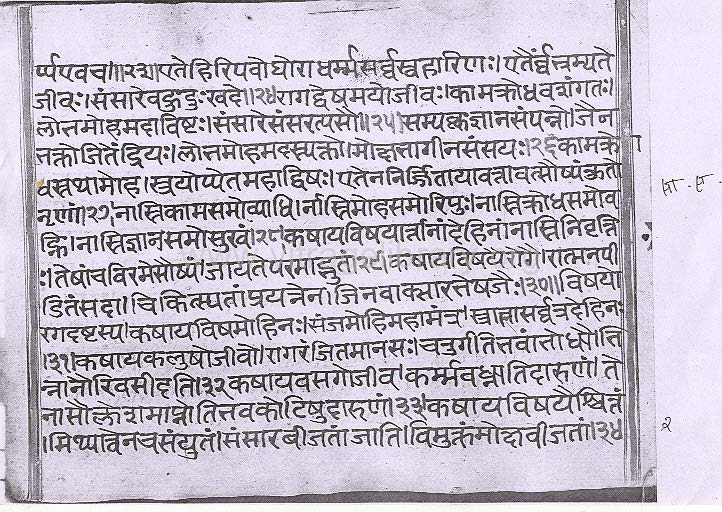 र्प्पएवच॥२३॥एतेहिरिपवोघोराधर्म्मसर्व्वस्वहारिणः।एतैर्बंभ्रम्यते
जीवः।संसारेवहुदुःखदे॥२४रागद्वेषमयोजीवः।कामक्रोधवशंगतः।
लोभमोहमदाविष्टः।संसारेसंसरत्यसौ॥२५॥सम्पक्तज्ञानसंपन्नो।जैन
भक्तोजितेंद्रियः।लोभमोहमदस्पक्तो।मोक्षभागीनसंसयः।२६कामक्रो
धस्तथामोह।स्त्रयोप्पेतेमहाद्विषः।एतेननिर्ज्जितायावत्तावत्सौष्पंकुतो
नृणां२७नास्तिकामसमोव्याधि।र्नास्तिमोहसमोरिपुः।नास्तिक्रोधसमोव
ह्नि।नास्तिज्ञानसमोसुखं।२८।कषायविषयार्त्तानांदेहिनांनास्तिनिवृत्ति
ः।तेषांचविरमेसौष्पं।जायतेपरमाद्भुतं।२९।कषायविषयोरगै।रात्मनपी
डितंसदा।चिकित्स्पतांप्रयत्नेन।जिनवाक्सारभेषजैः।३०॥विषयो
रगदष्टस्प।कषायविषमोहिनः।संजमोहिमहामंत्र।स्त्रातासर्व्वत्रदेहिनः
।३१।कषायकलुषोजीवो।रागरंजितमानसः।चतुर्गतिभवांभोधौ।भि
न्नानोरिवसीदति।३२कषायवसगोजीव।कर्म्मवध्नातिदारुणं।ते
नासौक्लेशमाप्नोतिभवकोटिषुदारुणं।३३।कषायविषयैश्चित्तं
।मिथ्यात्वेनचसंयुतं।संसारबीजतांजाति।विमुक्तंमोक्षवीजतां।३४
२